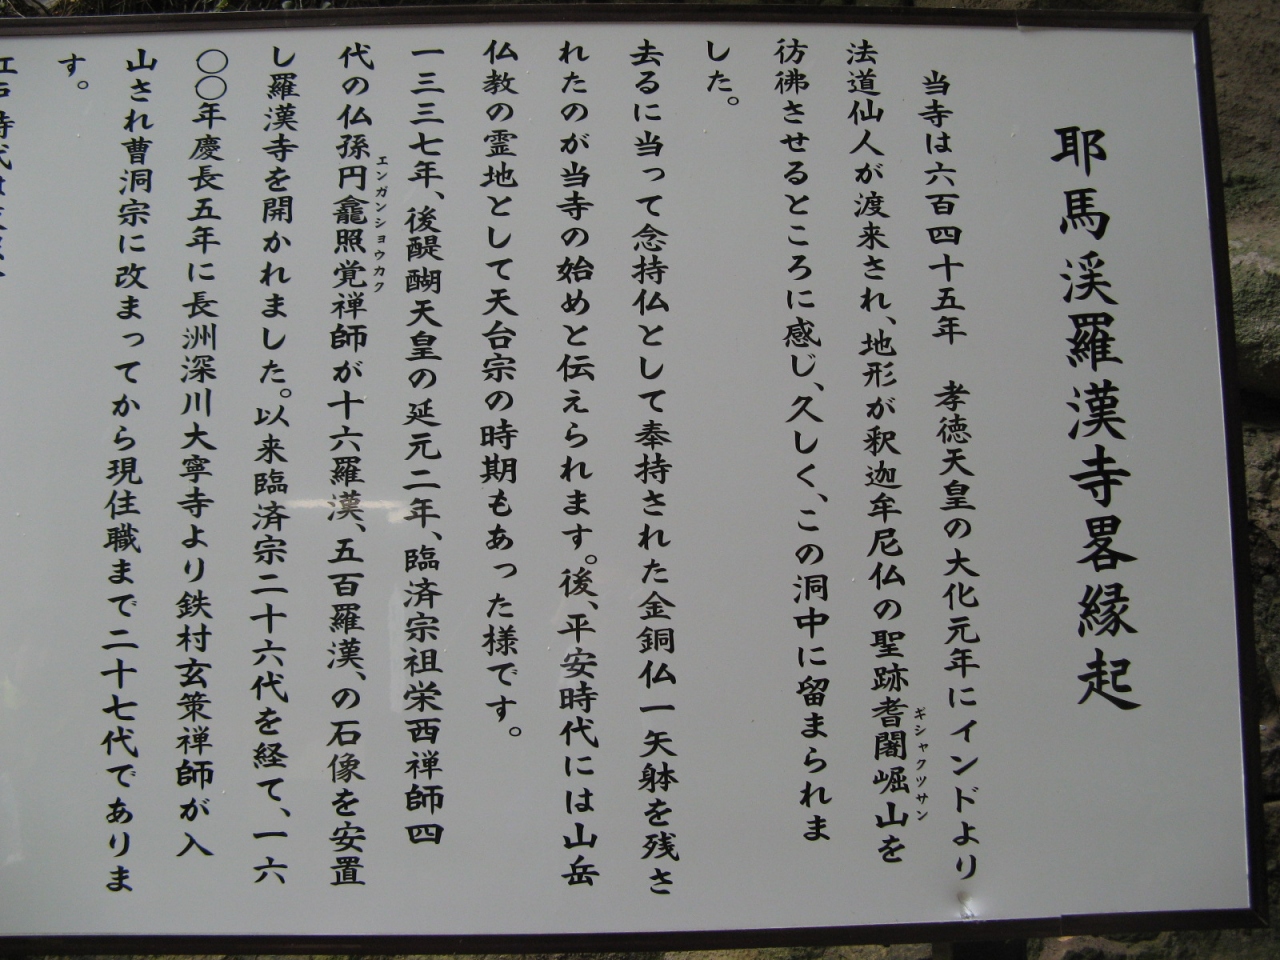 耶馬渓羅漢寺畧縁起
当寺は六百四十五年　孝徳天皇の大化元年にインドより
法道仙人が渡来され、地形が釈迦牟尼仏の聖跡耆闍崛山を
ギシャクツサン
彷彿させるところに感じ、久しく、この洞中に留まられま
した。
去るに当って念持仏として奉持された金銅仏一矢躰を残さ
れたのが当寺の始めと伝えられます。後、平安時代には山岳
仏教の霊地として天台宗の時期もあった様です。
一三三七年、後醍醐天皇の延元二年、臨済宗祖栄西禅師四
代の仏孫円龕照覚禅師が十六羅漢、五百羅漢、の石像を安置
エンガンショウカク
し羅漢寺を開かれました。以来臨済宗二十六代を経て、一六
〇〇年慶長五年に長洲深川大寧寺より鉄村玄策禅師が入
山され曹洞宗に改まってから現住職まで二十七代でありま
す。